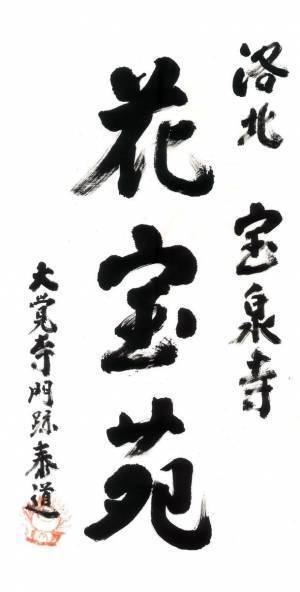 洛北 宝泉寺
花宝苑
大覚寺門跡泰道